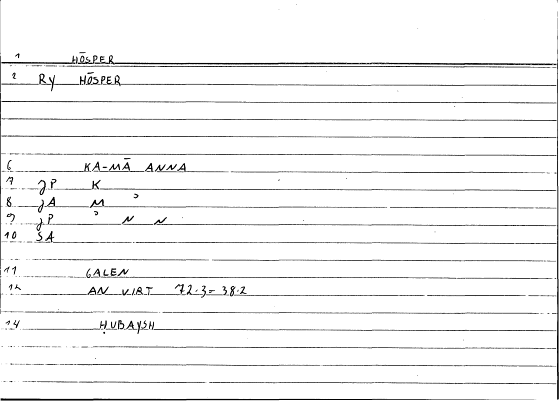 1 HŌSPER
2 RY HŌSPER
6 KA-MĀ ANNA
7 JP K
8 JA M ʾ
9 JP ʾ N N
10 SA
11 GALEN
12 AN VIRT 72.3 = 38.2
14 ḤUBAYSH